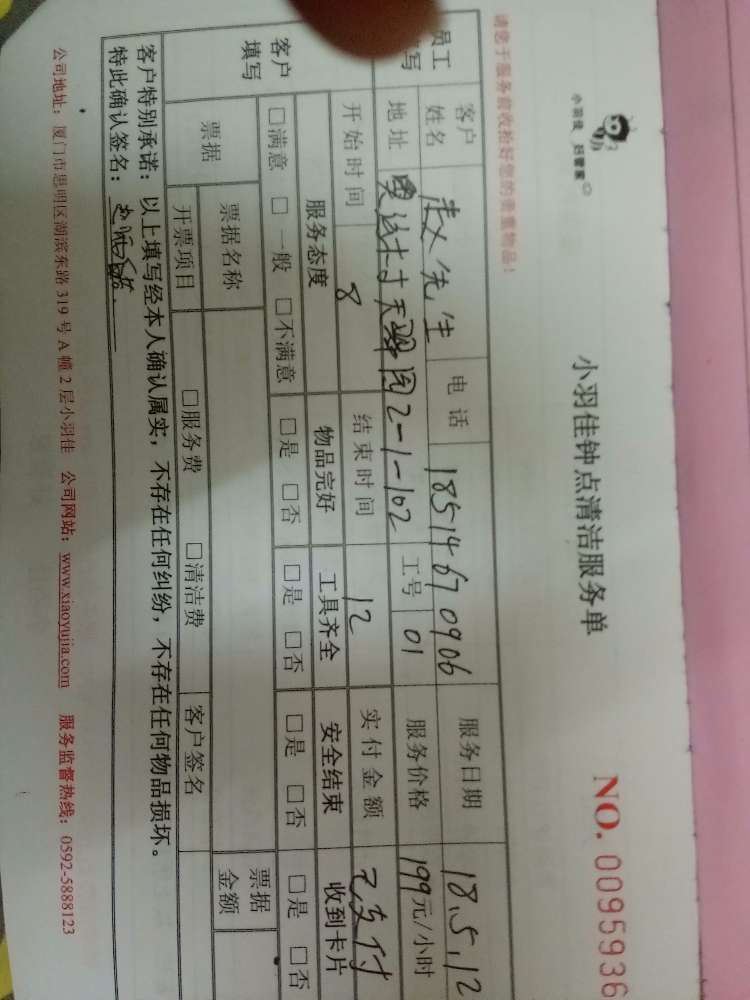 小羽佳 好管家
小羽佳钟点清洁服务单
NO. 0095936
请您于服务前收拾好您的贵重物品!
员工
填写
客户
姓名
赵先生
电话
18514670906
服务日期
18.5.12
地址
2-1-102
工号
01
服务价格
199元/小时
开始时间
8
结束时间
12
实付金额
已支付
客户
填写
服务态度
物品完好
工具齐全
安全结束
收到卡片
□满意 □一般 □不满意
□是 □否
□是 □否
□是 □否
□是 □否
票据
票据名称
票据
金额
开票项目
□服务费 □清洁费
客户签名
客户特别承诺:以上填写经本人确认属实,不存在任何纠纷,不存在任何物品损坏。
特此确认签名:
公司地址:厦门市思明区湖滨东路319号A幢2层小羽佳 公司网站:www.xiaoyujia.com 服务监督热线:0592-5888123